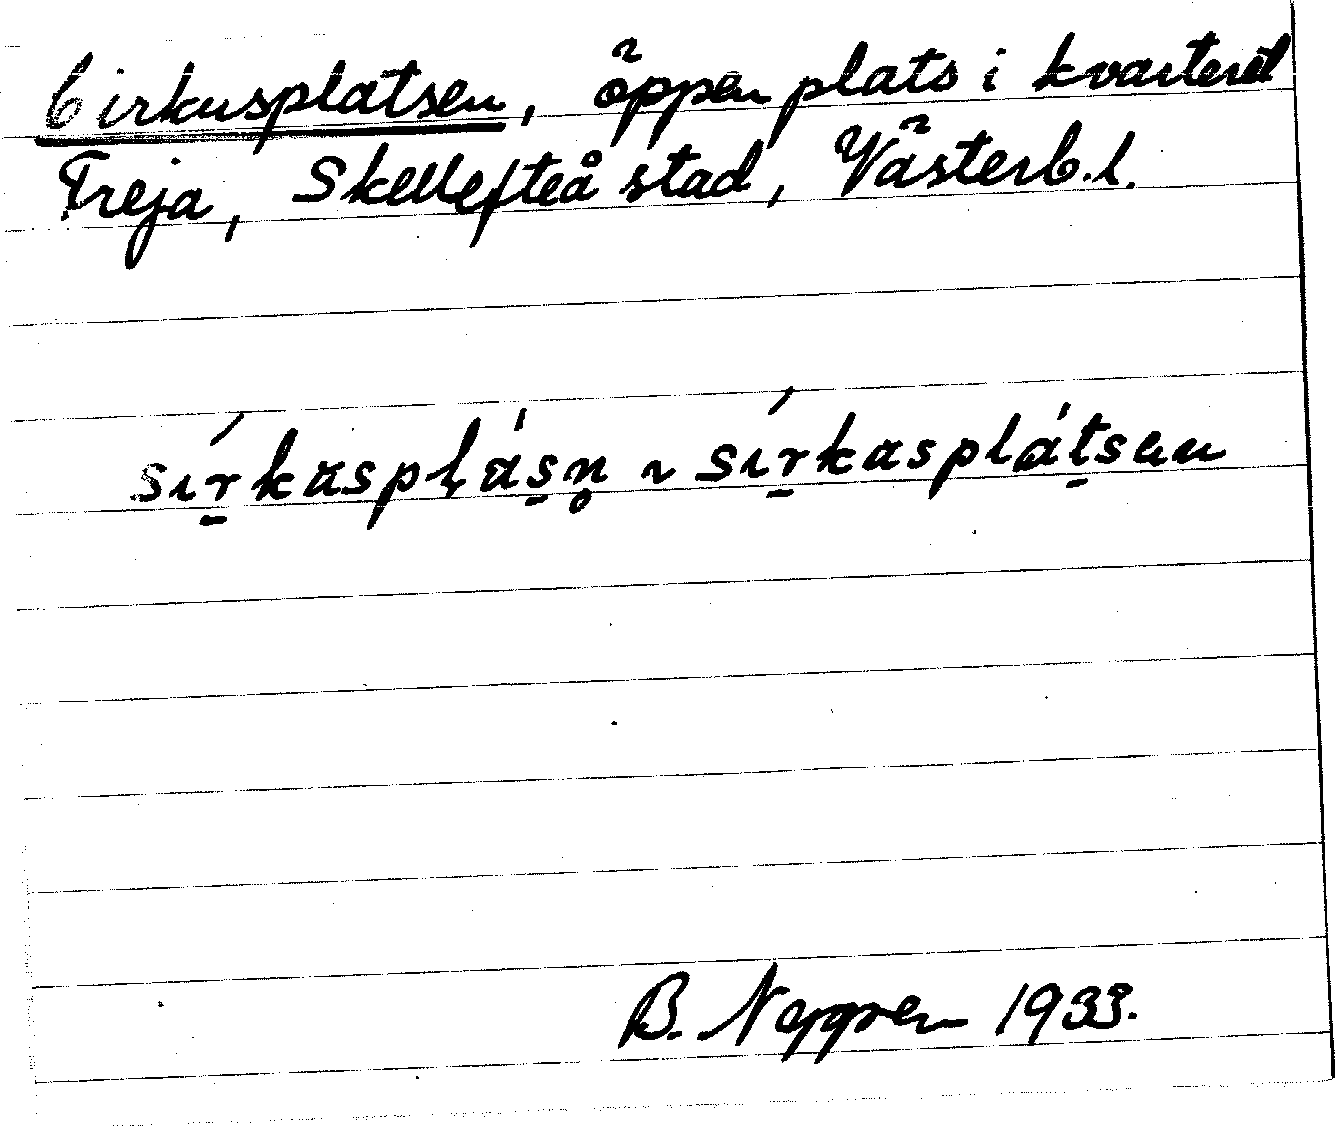 Cirkusplatsen, öppen plats i kvarteret
Treja, Skellefteå stad, Västerb.l.
sı́r̠kaspḷás̠n̥ ~ sı́r̠kasplát̠sen
B. 1933.